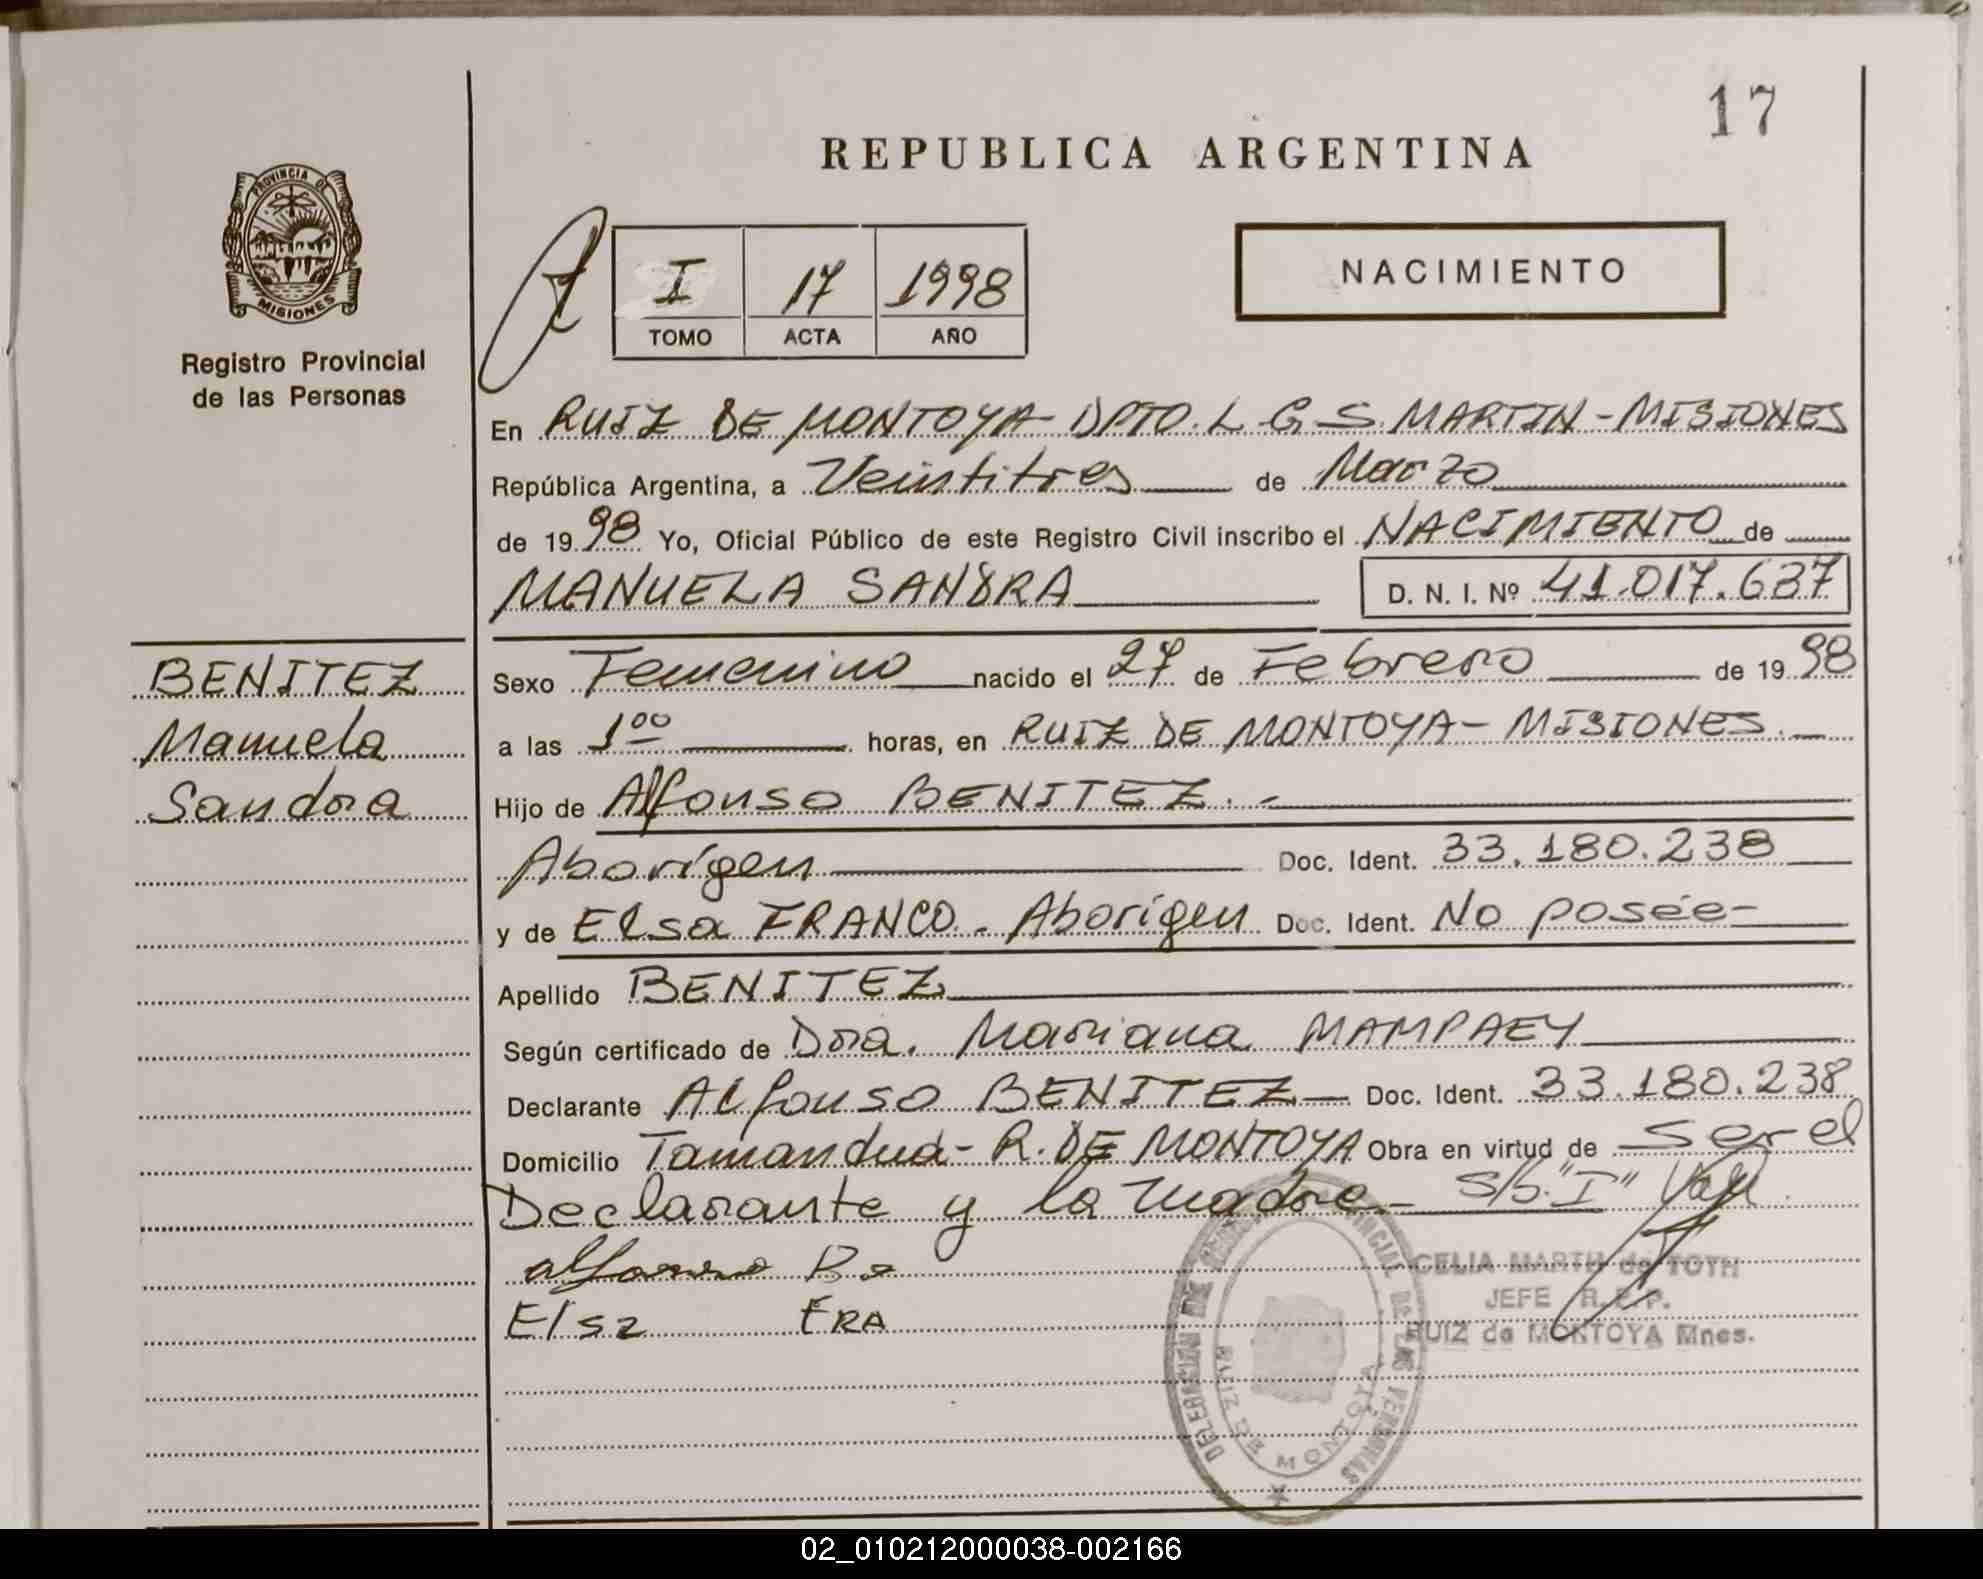 17
REPUBLICA ARGENTINA
PROVINCIA DE
MISIONES
Registro Provincial
de las Personas
I 17 1998
TOMO ACTA AÑO
NACIMIENTO
En RUIZ DE MONTOYA - DPTO. L. G. S. MARTIN - MISIONES
República Argentina, a Veintitres de Marzo
de 1998 Yo, Oficial Público de este Registro Civil inscribo el NACIMIENTO de
MANUELA SANDRA D. N. I. Nº 41.017.637
BENITEZ
Manuela
Sandra
Sexo Femenino nacido el 27 de Febrero de 1998
a las 1⁰⁰ horas, en RUIZ DE MONTOYA - MISIONES. -
Hijo de Alfonso BENITEZ. -
Aborígen Doc. Ident. 33.180.238
y de Elsa FRANCO. Aborígen Doc. Ident. No posée -
Apellido BENITEZ
Según certificado de Dra. Mariana MAMPAEY
Declarante Alfonso BENITEZ - Doc. Ident. 33.180.238
Domicilio Tamanduá - R. DE MONTOYA Obra en virtud de Ser el
Declarante y la madre - S/b. "I" Vale.
alfonso Be
Elsa FRA
CELIA MARTH de TOTH
JEFE R.P.P.
RUIZ de MONTOYA Mnes.
DELEGACIÓN DE PROVINCIAL DE LAS PERSONAS
RUIZ DE MONTOYA
02_010212000038-002166